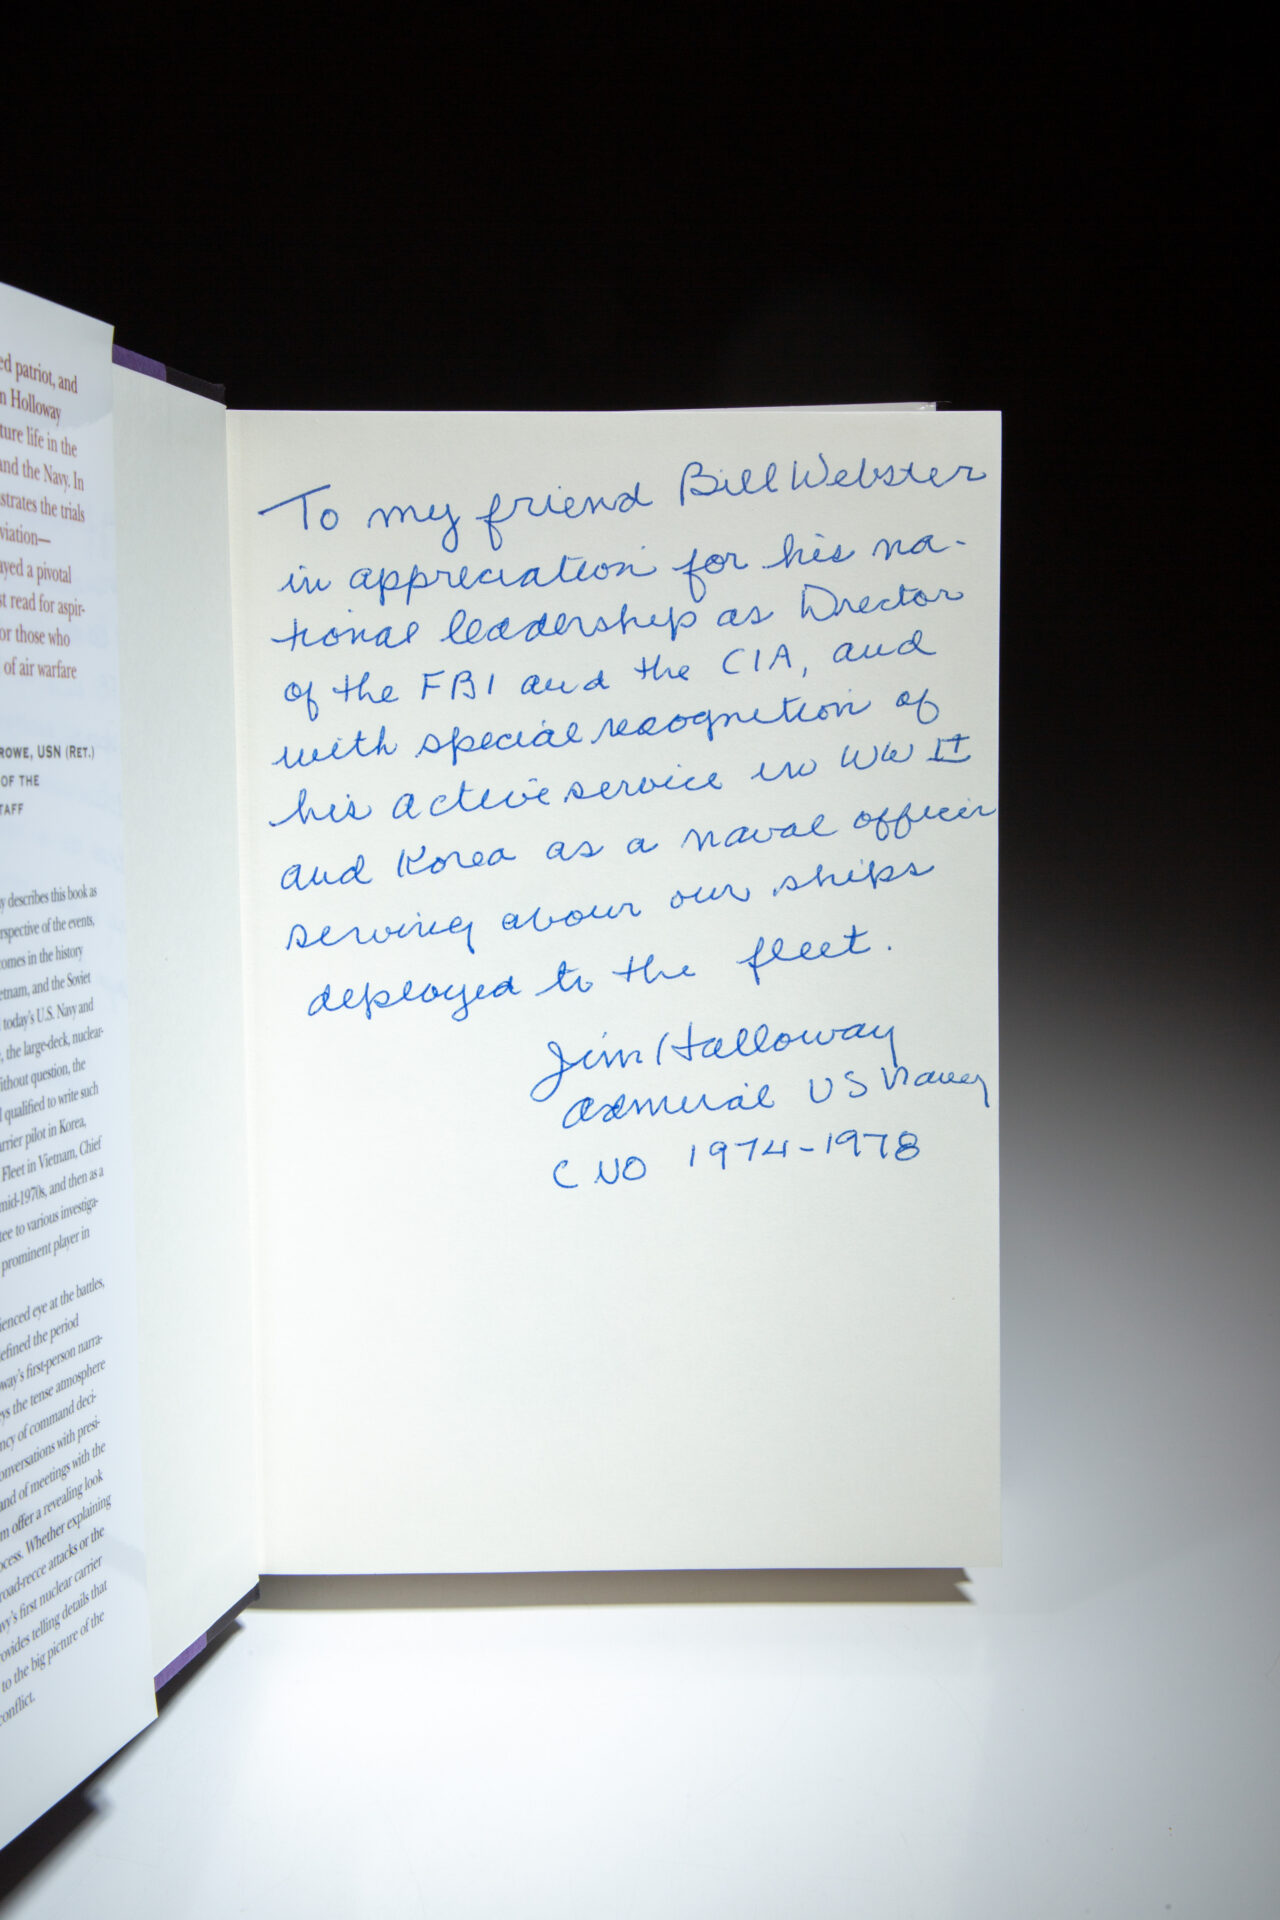 ed patriot, and
n Holloway
ture life in the
and the Navy. In
strates the trials
viation—
ayed a pivotal
st read for aspir-
or those who
of air warfare
ROWE, USN (RET.)
OF THE
TAFF
y describes this book as
rspective of the events,
comes in the history
etnam, and the Soviet
today's U.S. Navy and
, the large-deck, nuclear-
ithout question, the
l qualified to write such
rrier pilot in Korea,
Fleet in Vietnam, Chief
mid-1970s, and then as a
tee to various investiga-
prominent player in
ienced eye at the battles,
efined the period
way's first-person narra-
ys the tense atmosphere
ncy of command deci-
onversations with presi-
and of meetings with the
m offer a revealing look
ocess. Whether explaining
road-recce attacks or the
vy's first nuclear carrier
rovides telling details that
to the big picture of the
conflict.
To my friend Bill Webster
in appreciation for his na-
tional leadership as Director
of the FBI and the CIA, and
with special recognition of
his active service in WW II
and Korea as a naval officer
serving abour our ships
deployed to the fleet.
Jim Holloway
Admiral US Navy
CNO 1974-1978